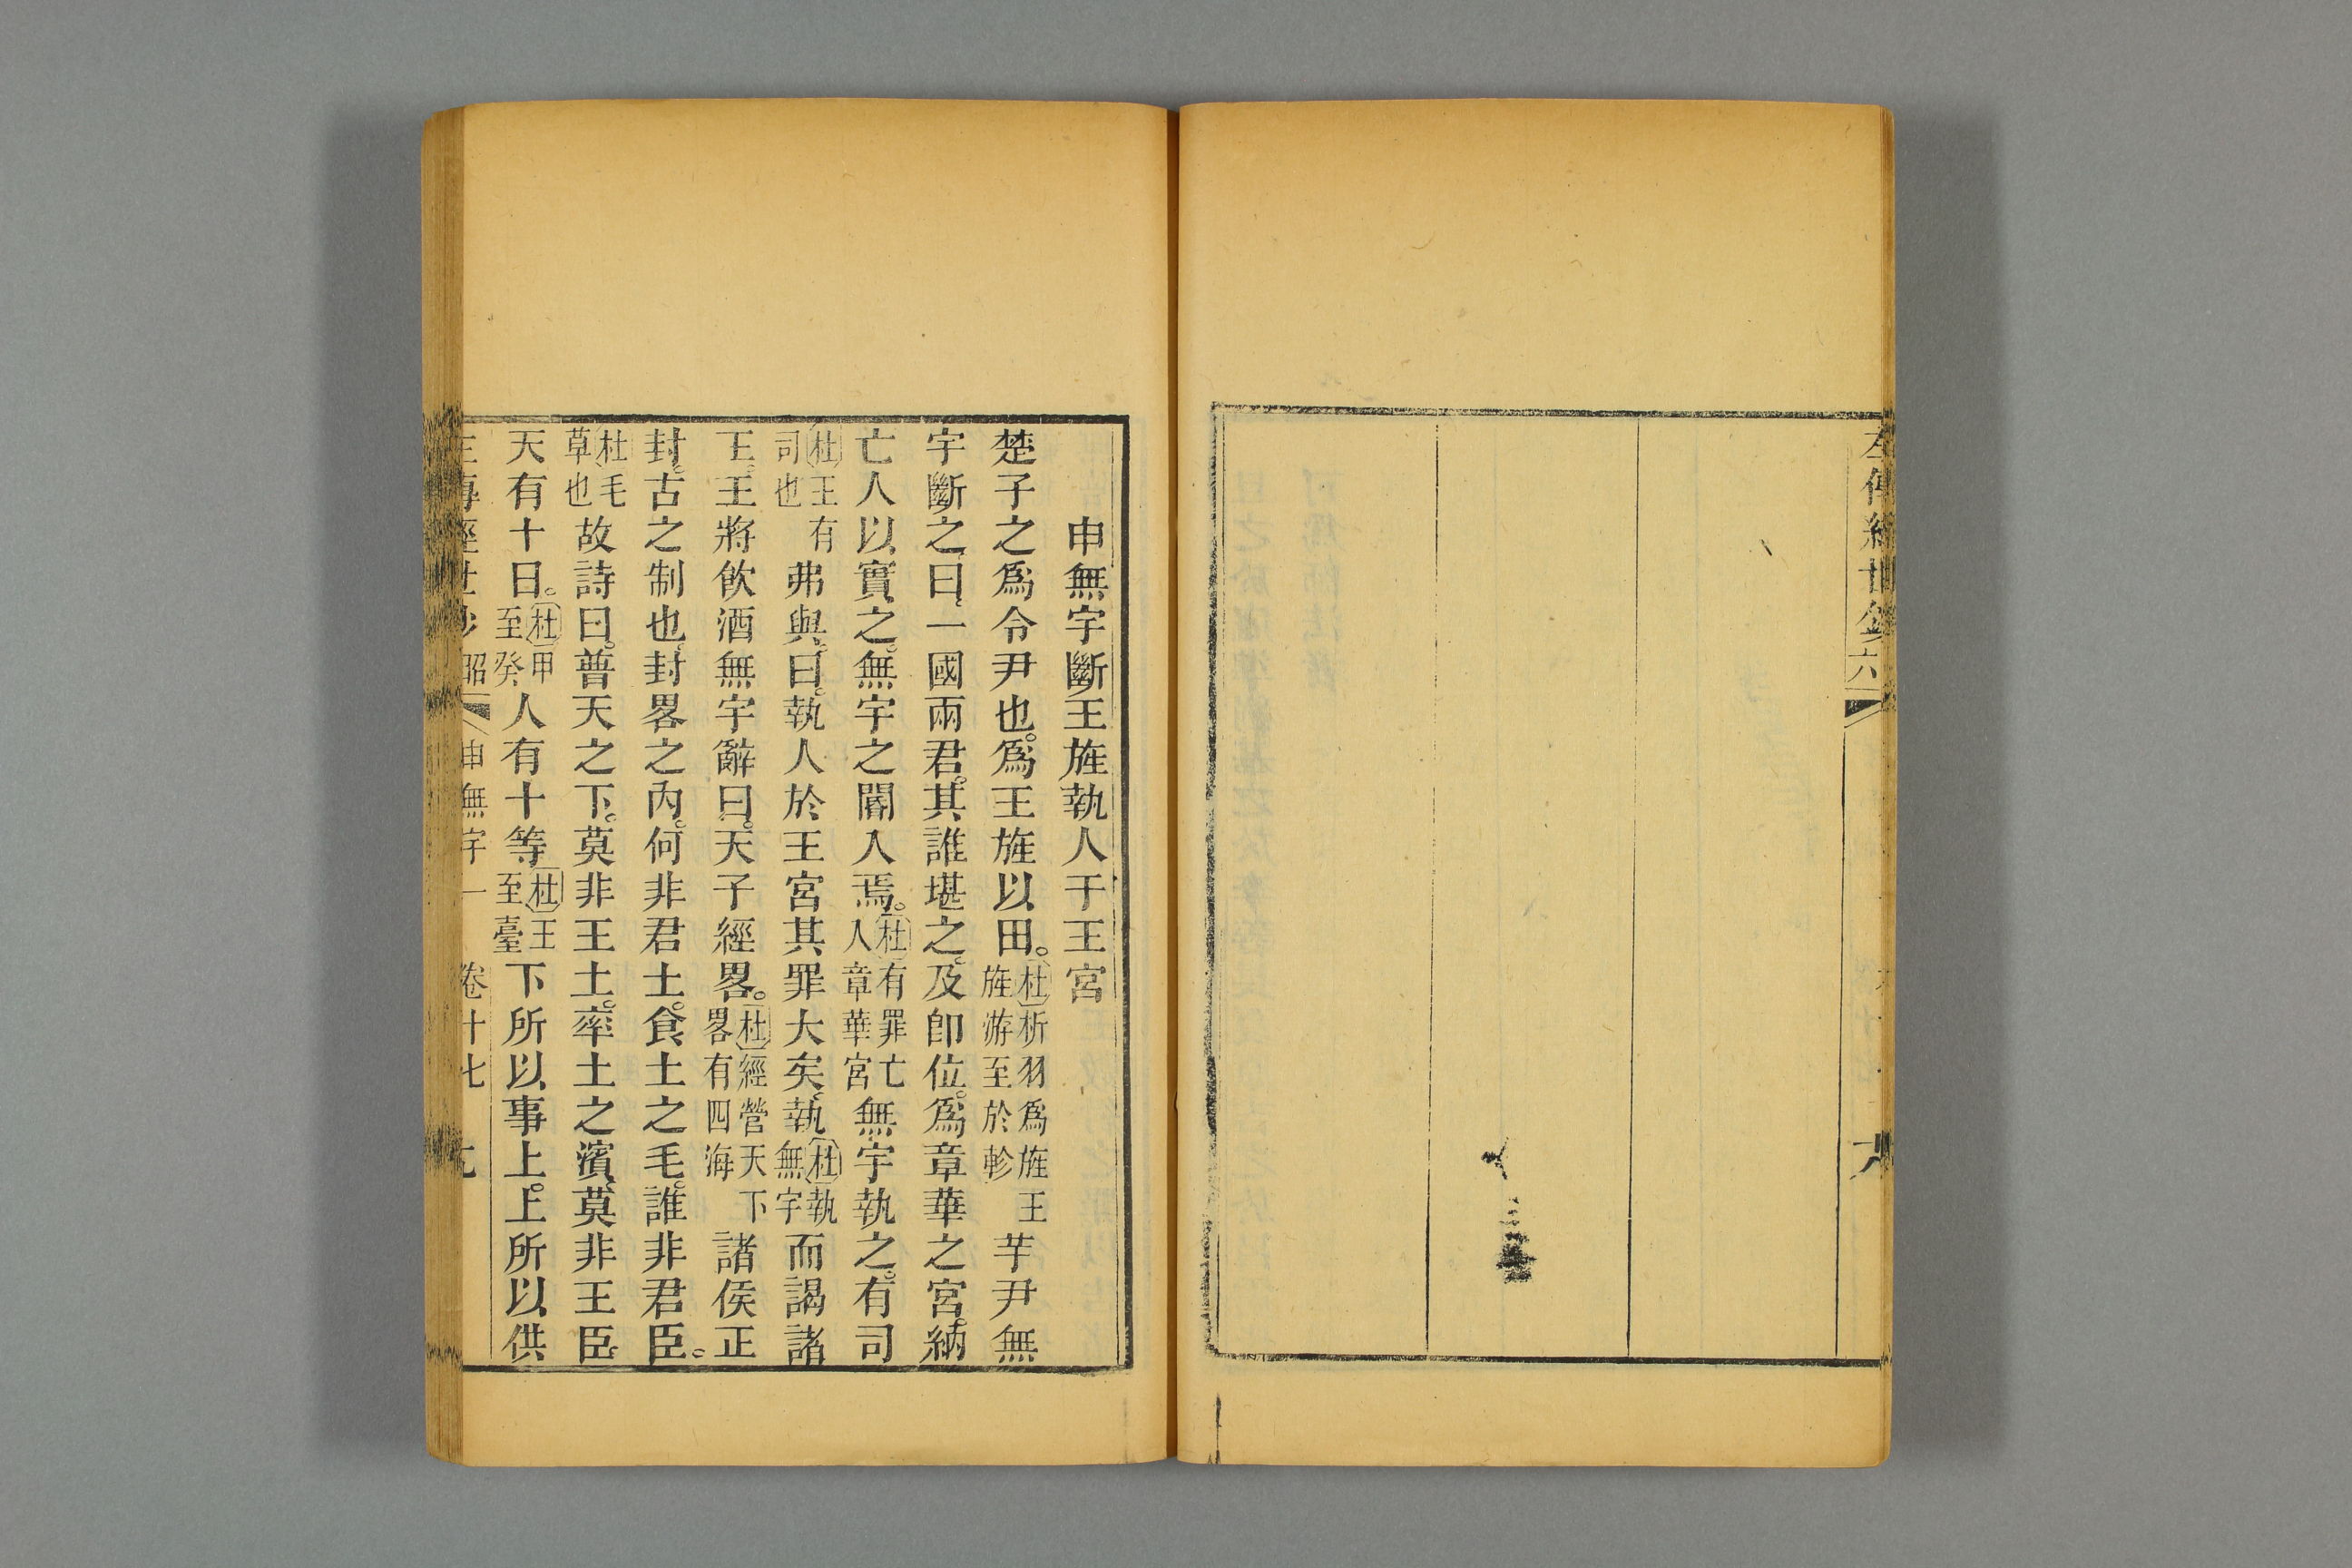 左傳經世鈔 六
申無宇斷王旌執人于王宮
楚子之爲令尹也。爲王旌以田。杜析羽爲旌王旌游至於軫芋尹無
宇斷之、曰、一國兩君。其誰堪之。及卽位。爲章華之宮。納
亡人以實之。無宇之閽入焉。杜有罪亡人章華宮無宇執之。有司
杜王有司也弗與。曰。執人於王宮其罪大矣。執杜執無宇而謁諸
王。王將飮酒無宇辭曰。天子經畧。杜經營天下畧有四海諸侯正
封。古之制也。封畧之內。何非君土。食土之毛。誰非君臣。
杜毛草也故詩曰。普天之下。莫非王土。率土之濱。莫非王臣
天有十日。杜甲至癸人有十等杜王至臺下所以事上。上所以供
左傳經世鈔 昭 申無宇一 卷十七